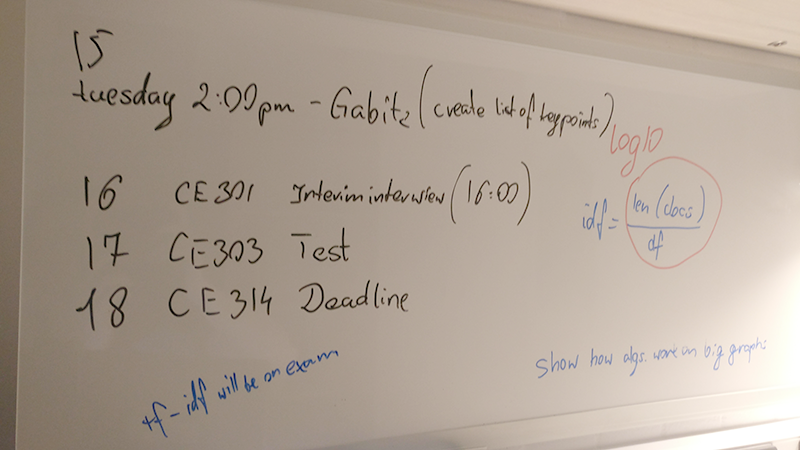 15
tuesday 2:00pm - Gabitz (create list of keypoints)
log10
16 CE301 Interim interview (16:00)
idf = len(docs)
df
17 CE303 Test
18 CE314 Deadline
tf-idf will be on exam
show how algs. work on big graphs